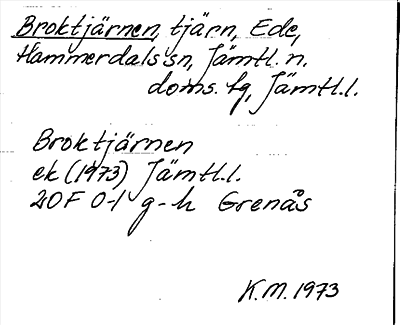 Broktjärnen, tjärn, Ede,
Hammerdals sn, Jämtl. n.
doms. fg, Jämtl. l.
Broktjärnen
ek (1973) Jämtl. l.
20F 0-1 g-h Grenås
K.M. 1973